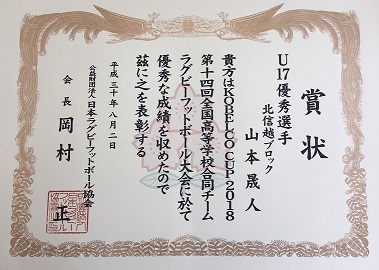 賞状
U17優秀選手
北信越ブロック
山本晟人
貴方はKOBELCO CUP 2018
第十四回全国高等学校合同チーム
ラグビーフットボール大会に於て
優秀な成績を収めたので
茲に之を表彰する
平成三十年八月二日
公益財団法人日本ラグビーフットボール協会
会長 岡村 正